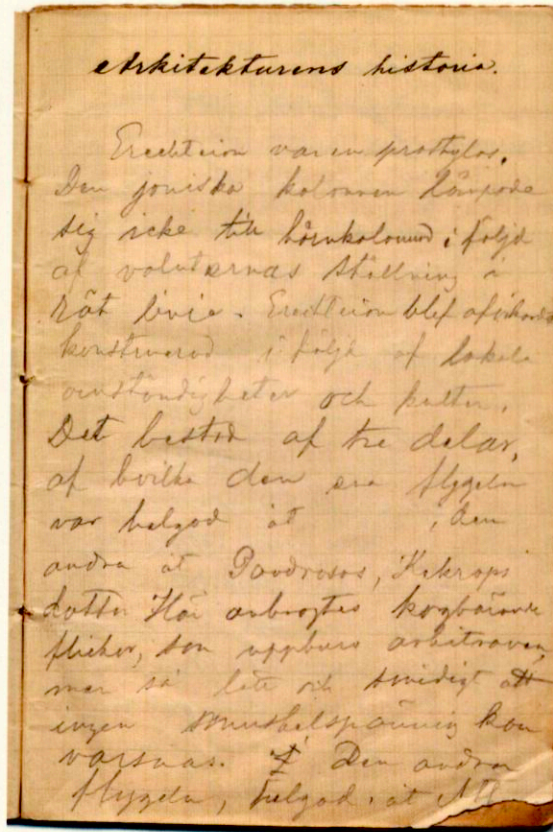 Arkitekturens historia.
Erechteion var en prostylos.
Den joniska kolonnen lämpade
sig icke till hörnkolonnd i följd
af voluternas ställning i
rät linie. Erechteion blef
konstruerad i följd af lokala
omständigheter och kulten.
Det bestod af tre delar,
af hvilka den ena flygeln
var helgad åt , den
andra åt Pandrosos, Kekrops
dotter. Här anbragtes korgbärande
flickor, som uppburo arkitraven,
men så lätt och smidigt att
ingen muskelspänning kan
varsnas. Den andra
flygeln, helgad åt